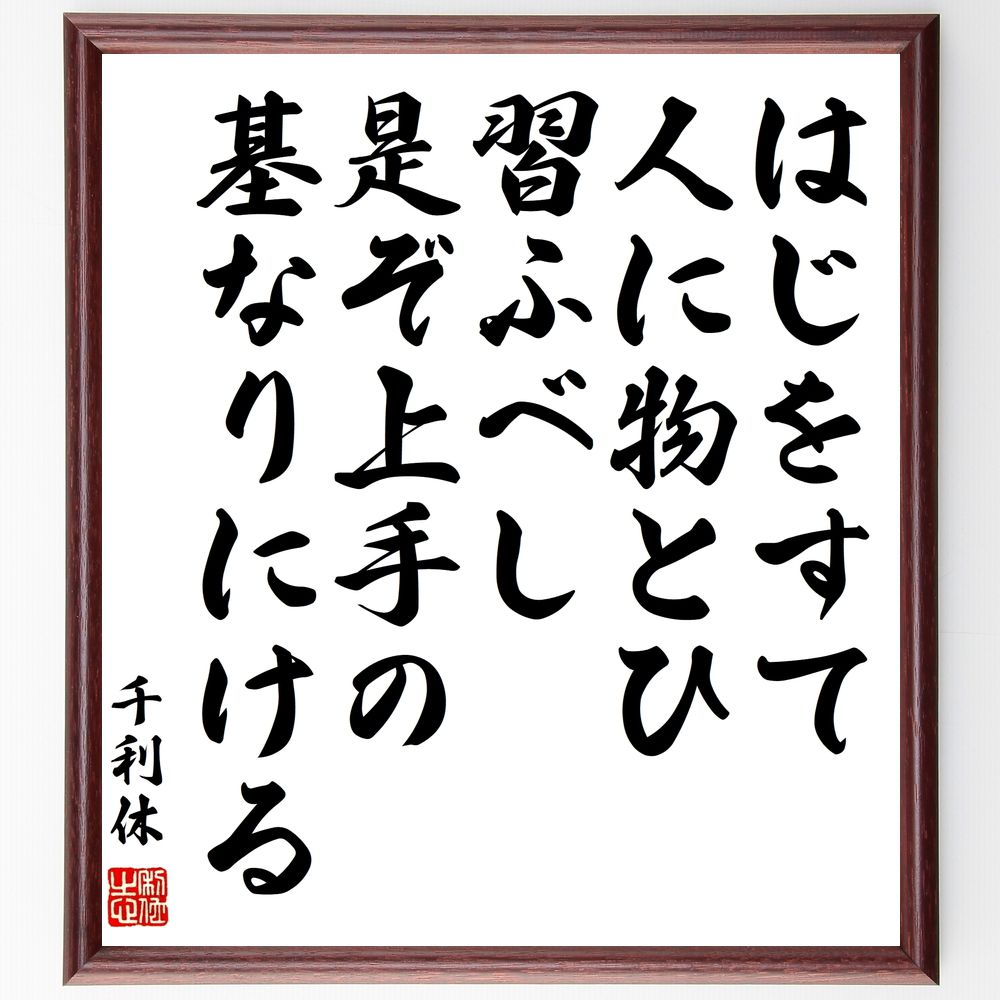 はじをすて
人に物とひ
習ふべし
是ぞ上手の
基なりにける
千利休